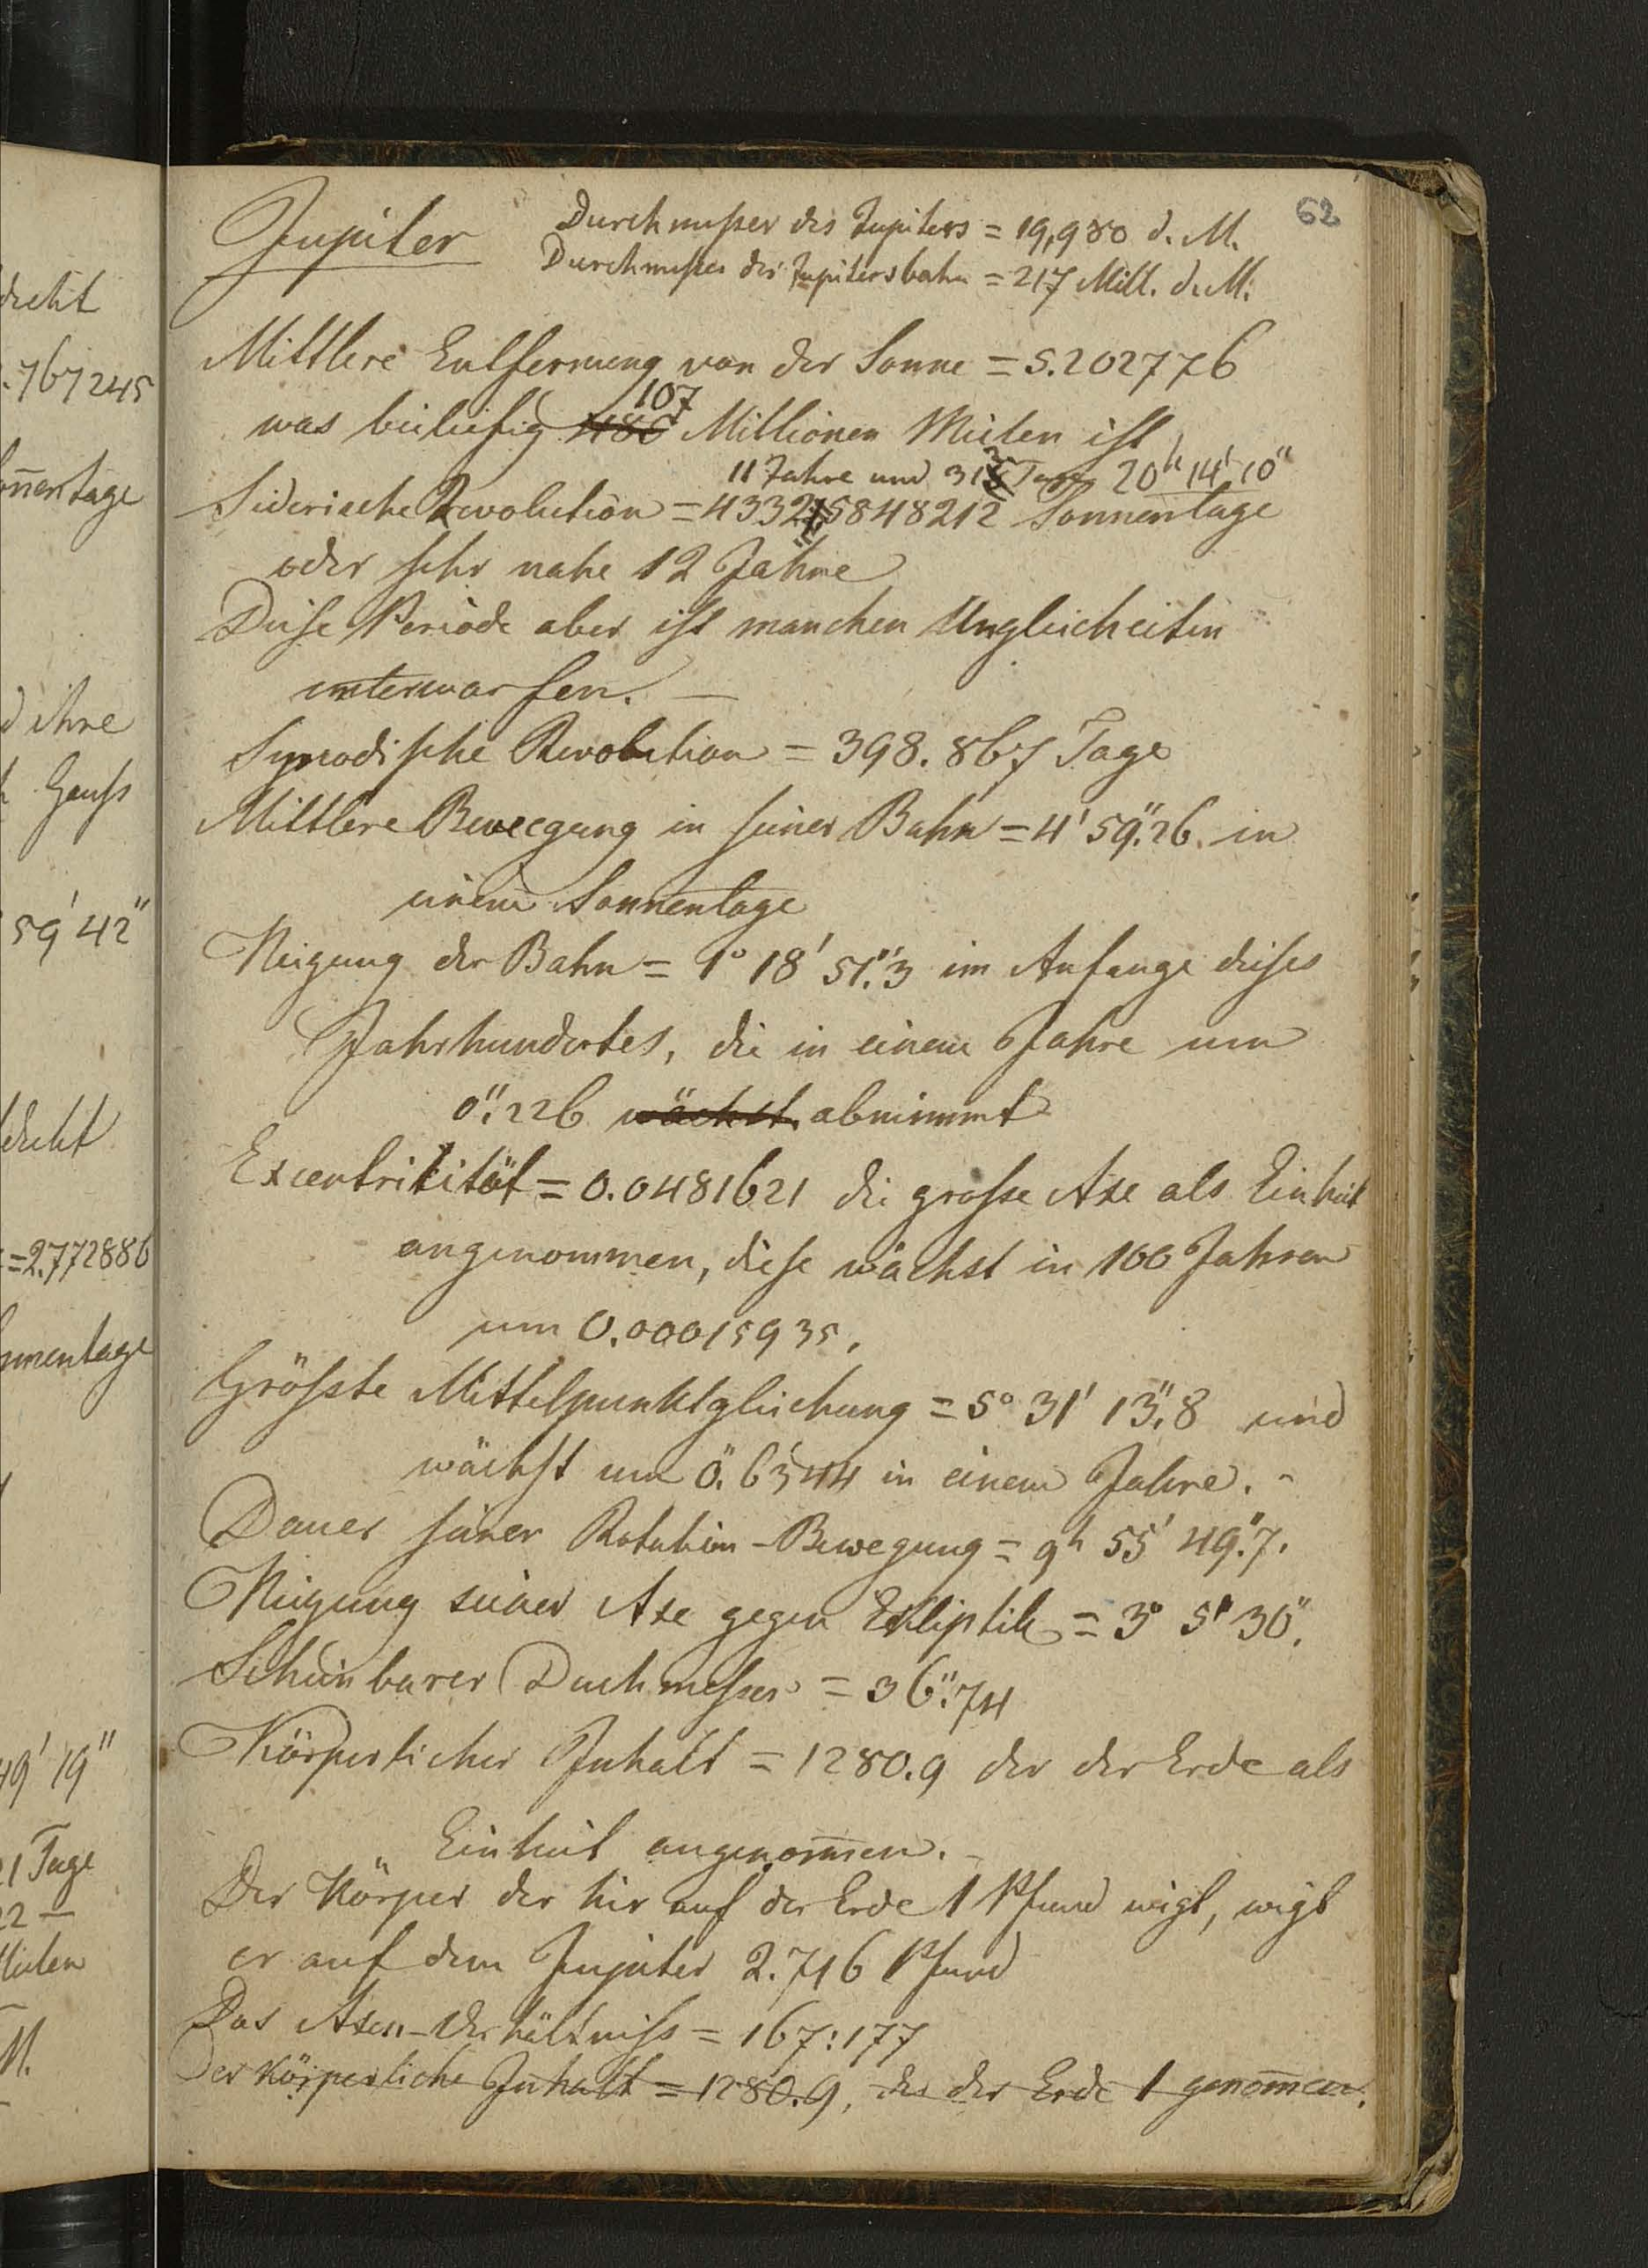 62
Jupiter
Durchmeßer des Jupiters = 19,980 d. M.
Durchmeßer der Jupitersbahn = 217 Mill. d. M.
Mittlere Entfernung von der Sonne = 5.202776
107
was beiläufig 486 Millionen Meilen ist
11 Jahre und 315 Tage 20h 14' 10"
Siderische Revolution = 4332.5848212 Sonnentage
oder sehr nahe 12 Jahre
Diese Periode aber ist manchen Ungleicheiten
unterworfen. —
Synodische Revolution = 398.867 Tage
Mittlere Bewegung in seiner Bahn = 4' 59".26 in
einem Sonnentage
Neigung der Bahn = 1° 18' 51".3 im Anfange dieses
Jahrhundertes, die in einem Jahre um
0".226 wächst abnimmt
Excentrikität = 0.0481621 die große Axe als Einheit
angenommen, diese wächst in 100 Jahren
um 0.00015935.
Größte Mittelpunktgleichung = 5° 31' 13".8 und
wächst um 0".6344 in einem Jahre. -
Dauer seiner Rotation-Bewegung = 9h 55' 49".7.
Neigung seiner Axe gegen Ekliptik = 3° 5' 30".
Scheinbarer Duchmeßer = 36".74
Körperlicher Inhalt = 1280.9 der der Erde als
Einheit angenom̄en. -
Der Körper der hir auf der Erde 1 Pfund wigt, wigt
er auf dem Jupiter 2.716 Pfund
Das Axen-Verhältniß = 167:177
Der Körperliche Inhalt = 1280.9, der der Erde 1 genom̄en.
767245
on̄entage
ihre
Gauß
59' 42"
=2.772886
nnentage
49' 19"
21 Tage
22 —
M.